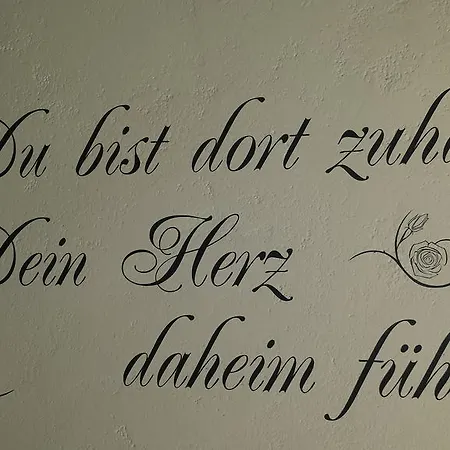 Du bist dort zuh
Dein Herz
daheim füh